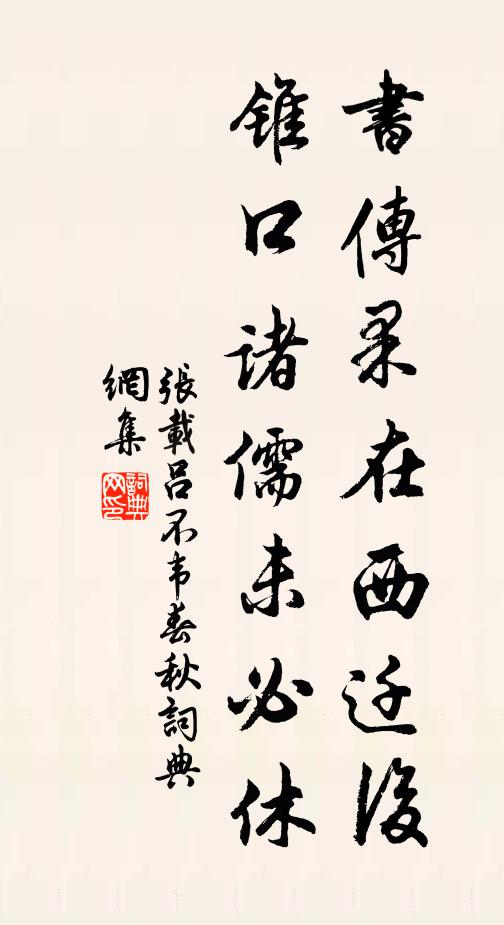 書傳果在西迁後
錐口諸儒未必休
張載呂不韦春秋詞典
網集
詞典
网印